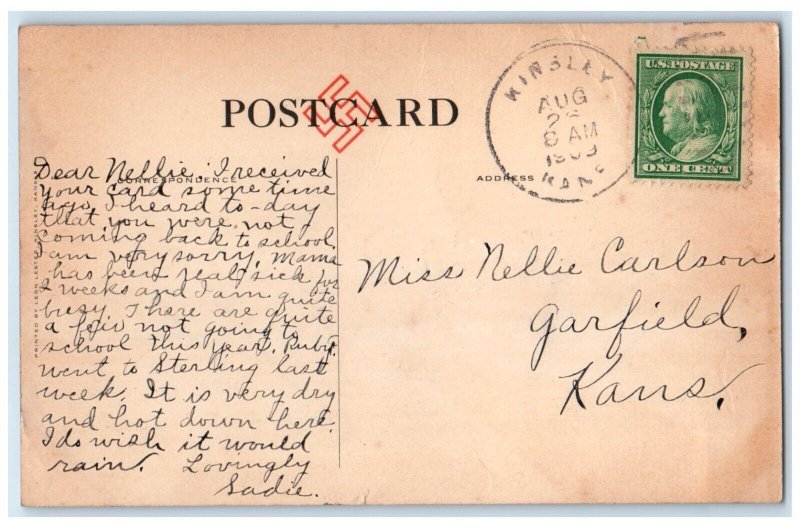 POSTCARD
CORRESPONDENCE
ADDRESS
KINSLEY
AUG
8 AM
1909
KANS
U.S. POSTAGE
ONE CENT
Dear Nellie: I received
your card some time
ago. I heard to-day
that you were not
coming back to school.
I am very sorry. Mama
has been real sick for
2 weeks and I am quite
busy. There are quite
a few not going to
school this year. Ruby
went to Sterling last
week. It is very dry
and hot down here.
I do wish it would
rain. Lovingly
Sadie.
Miss Nellie Carlson
Garfield,
Kans.
PRINTED BY LEON LESTER, KINSLEY, KANS